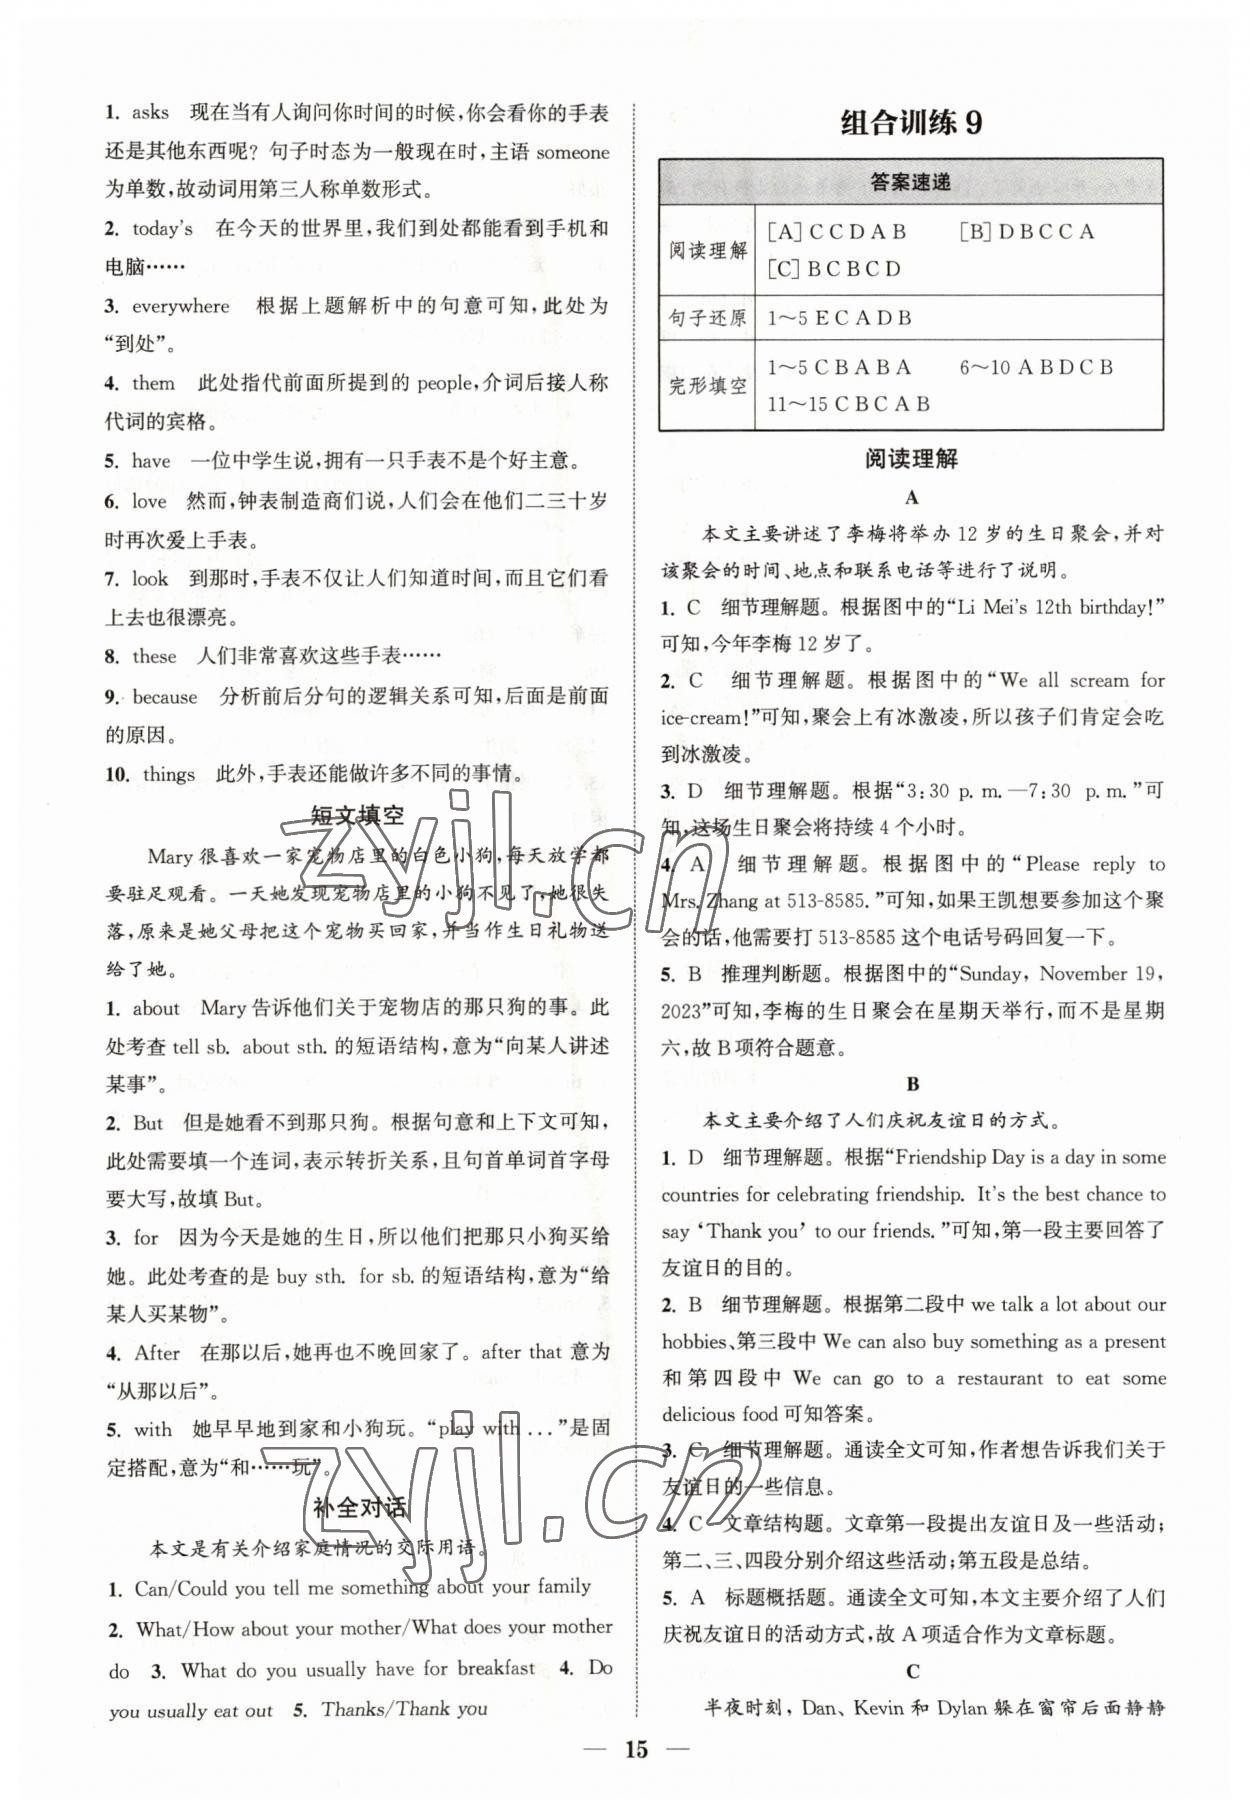 1. asks 现在当有人询问你时间的时候,你会看你的手表
还是其他东西呢? 句子时态为一般现在时,主语 someone
为单数,故动词用第三人称单数形式。
2. today's 在今天的世界里,我们到处都能看到手机和
电脑……
3. everywhere 根据上题解析中的句意可知,此处为
“到处”。
4. them 此处指代前面所提到的 people,介词后接人称
代词的宾格。
5. have 一位中学生说,拥有一只手表不是个好主意。
6. love 然而,钟表制造商们说,人们会在他们二三十岁
时再次爱上手表。
7. look 到那时,手表不仅让人们知道时间,而且它们看
上去也很漂亮。
8. these 人们非常喜欢这些手表……
9. because 分析前后分句的逻辑关系可知,后面是前面
的原因。
10. things 此外,手表还能做许多不同的事情。
短文填空
Mary 很喜欢一家宠物店里的白色小狗,每天放学都
要驻足观看。一天她发现宠物店里的小狗不见了,她很失
落,原来是她父母把这个宠物买回家,并当作生日礼物送
给了她。
1. about Mary 告诉他们关于宠物店的那只狗的事。此
处考查 tell sb. about sth. 的短语结构,意为“向某人讲述
某事”。
2. But 但是她看不到那只狗。根据句意和上下文可知,
此处需要填一个连词,表示转折关系,且句首单词首字母
要大写,故填 But。
3. for 因为今天是她的生日,所以他们把那只小狗买给
她。此处考查的是 buy sth. for sb. 的短语结构,意为“给
某人买某物”。
4. After 在那以后,她再也不晚回家了。after that 意为
“从那以后”。
5. with 她早早地到家和小狗玩。“play with ...”是固
定搭配,意为“和……玩”。
补全对话
本文是有关介绍家庭情况的交际用语。
1. Can/Could you tell me something about your family
2. What/How about your mother/What does your mother
do 3. What do you usually have for breakfast 4. Do
you usually eat out 5. Thanks/Thank you
组合训练 9
答案速递
阅读理解 [A] C C D A B [B] D B C C A
[C] B C B C D
句子还原 1～5 E C A D B
完形填空 1～5 C B A B A 6～10 A B D C B
11～15 C B C A B
阅读理解
A
本文主要讲述了李梅将举办 12 岁的生日聚会,并对
该聚会的时间、地点和联系电话等进行了说明。
1. C 细节理解题。根据图中的“Li Mei's 12th birthday!”
可知,今年李梅 12 岁了。
2. C 细节理解题。根据图中的“We all scream for
ice-cream!”可知,聚会上有冰激凌,所以孩子们肯定会吃
到冰激凌。
3. D 细节理解题。根据“3:30 p. m.—7:30 p. m.”可
知,这场生日聚会将持续 4 个小时。
4. A 细节理解题。根据图中的“Please reply to
Mrs. Zhang at 513-8585.”可知,如果王凯想要参加这个聚
会的话,他需要打 513-8585 这个电话号码回复一下。
5. B 推理判断题。根据图中的“Sunday, November 19,
2023”可知,李梅的生日聚会在星期天举行,而不是星期
六,故 B 项符合题意。
B
本文主要介绍了人们庆祝友谊日的方式。
1. D 细节理解题。根据“Friendship Day is a day in some
countries for celebrating friendship. It's the best chance to
say ‘Thank you’ to our friends.”可知,第一段主要回答了
友谊日的目的。
2. B 细节理解题。根据第二段中 we talk a lot about our
hobbies、第三段中 We can also buy something as a present
和第四段中 We can go to a restaurant to eat some
delicious food 可知答案。
3. C 细节理解题。通读全文可知,作者想告诉我们关于
友谊日的一些信息。
4. C 文章结构题。文章第一段提出友谊日及一些活动;
第二、三、四段分别介绍这些活动;第五段是总结。
5. A 标题概括题。通读全文可知,本文主要介绍了人们
庆祝友谊日的活动方式,故 A 项适合作为文章标题。
C
半夜时刻,Dan、Kevin 和 Dylan 躲在窗帘后面静静
— 15 —
zyjl.cn
zyjl.cn